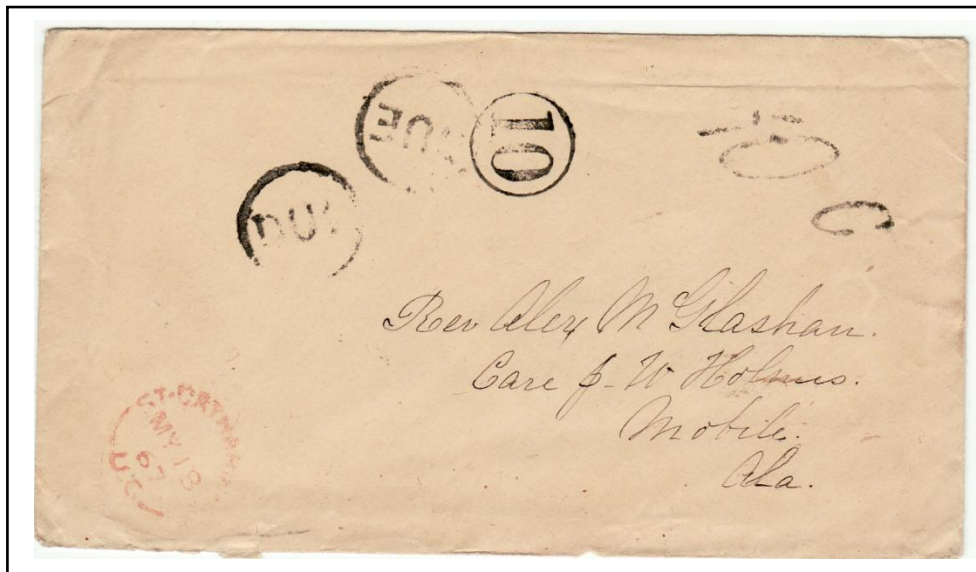 DUE
10
10
C
DUE
Rev Alex McGlashan.
Care J. W Holmes.
Mobile.
Ala.
ST. CATHARINES
MY 18
67
U.C.